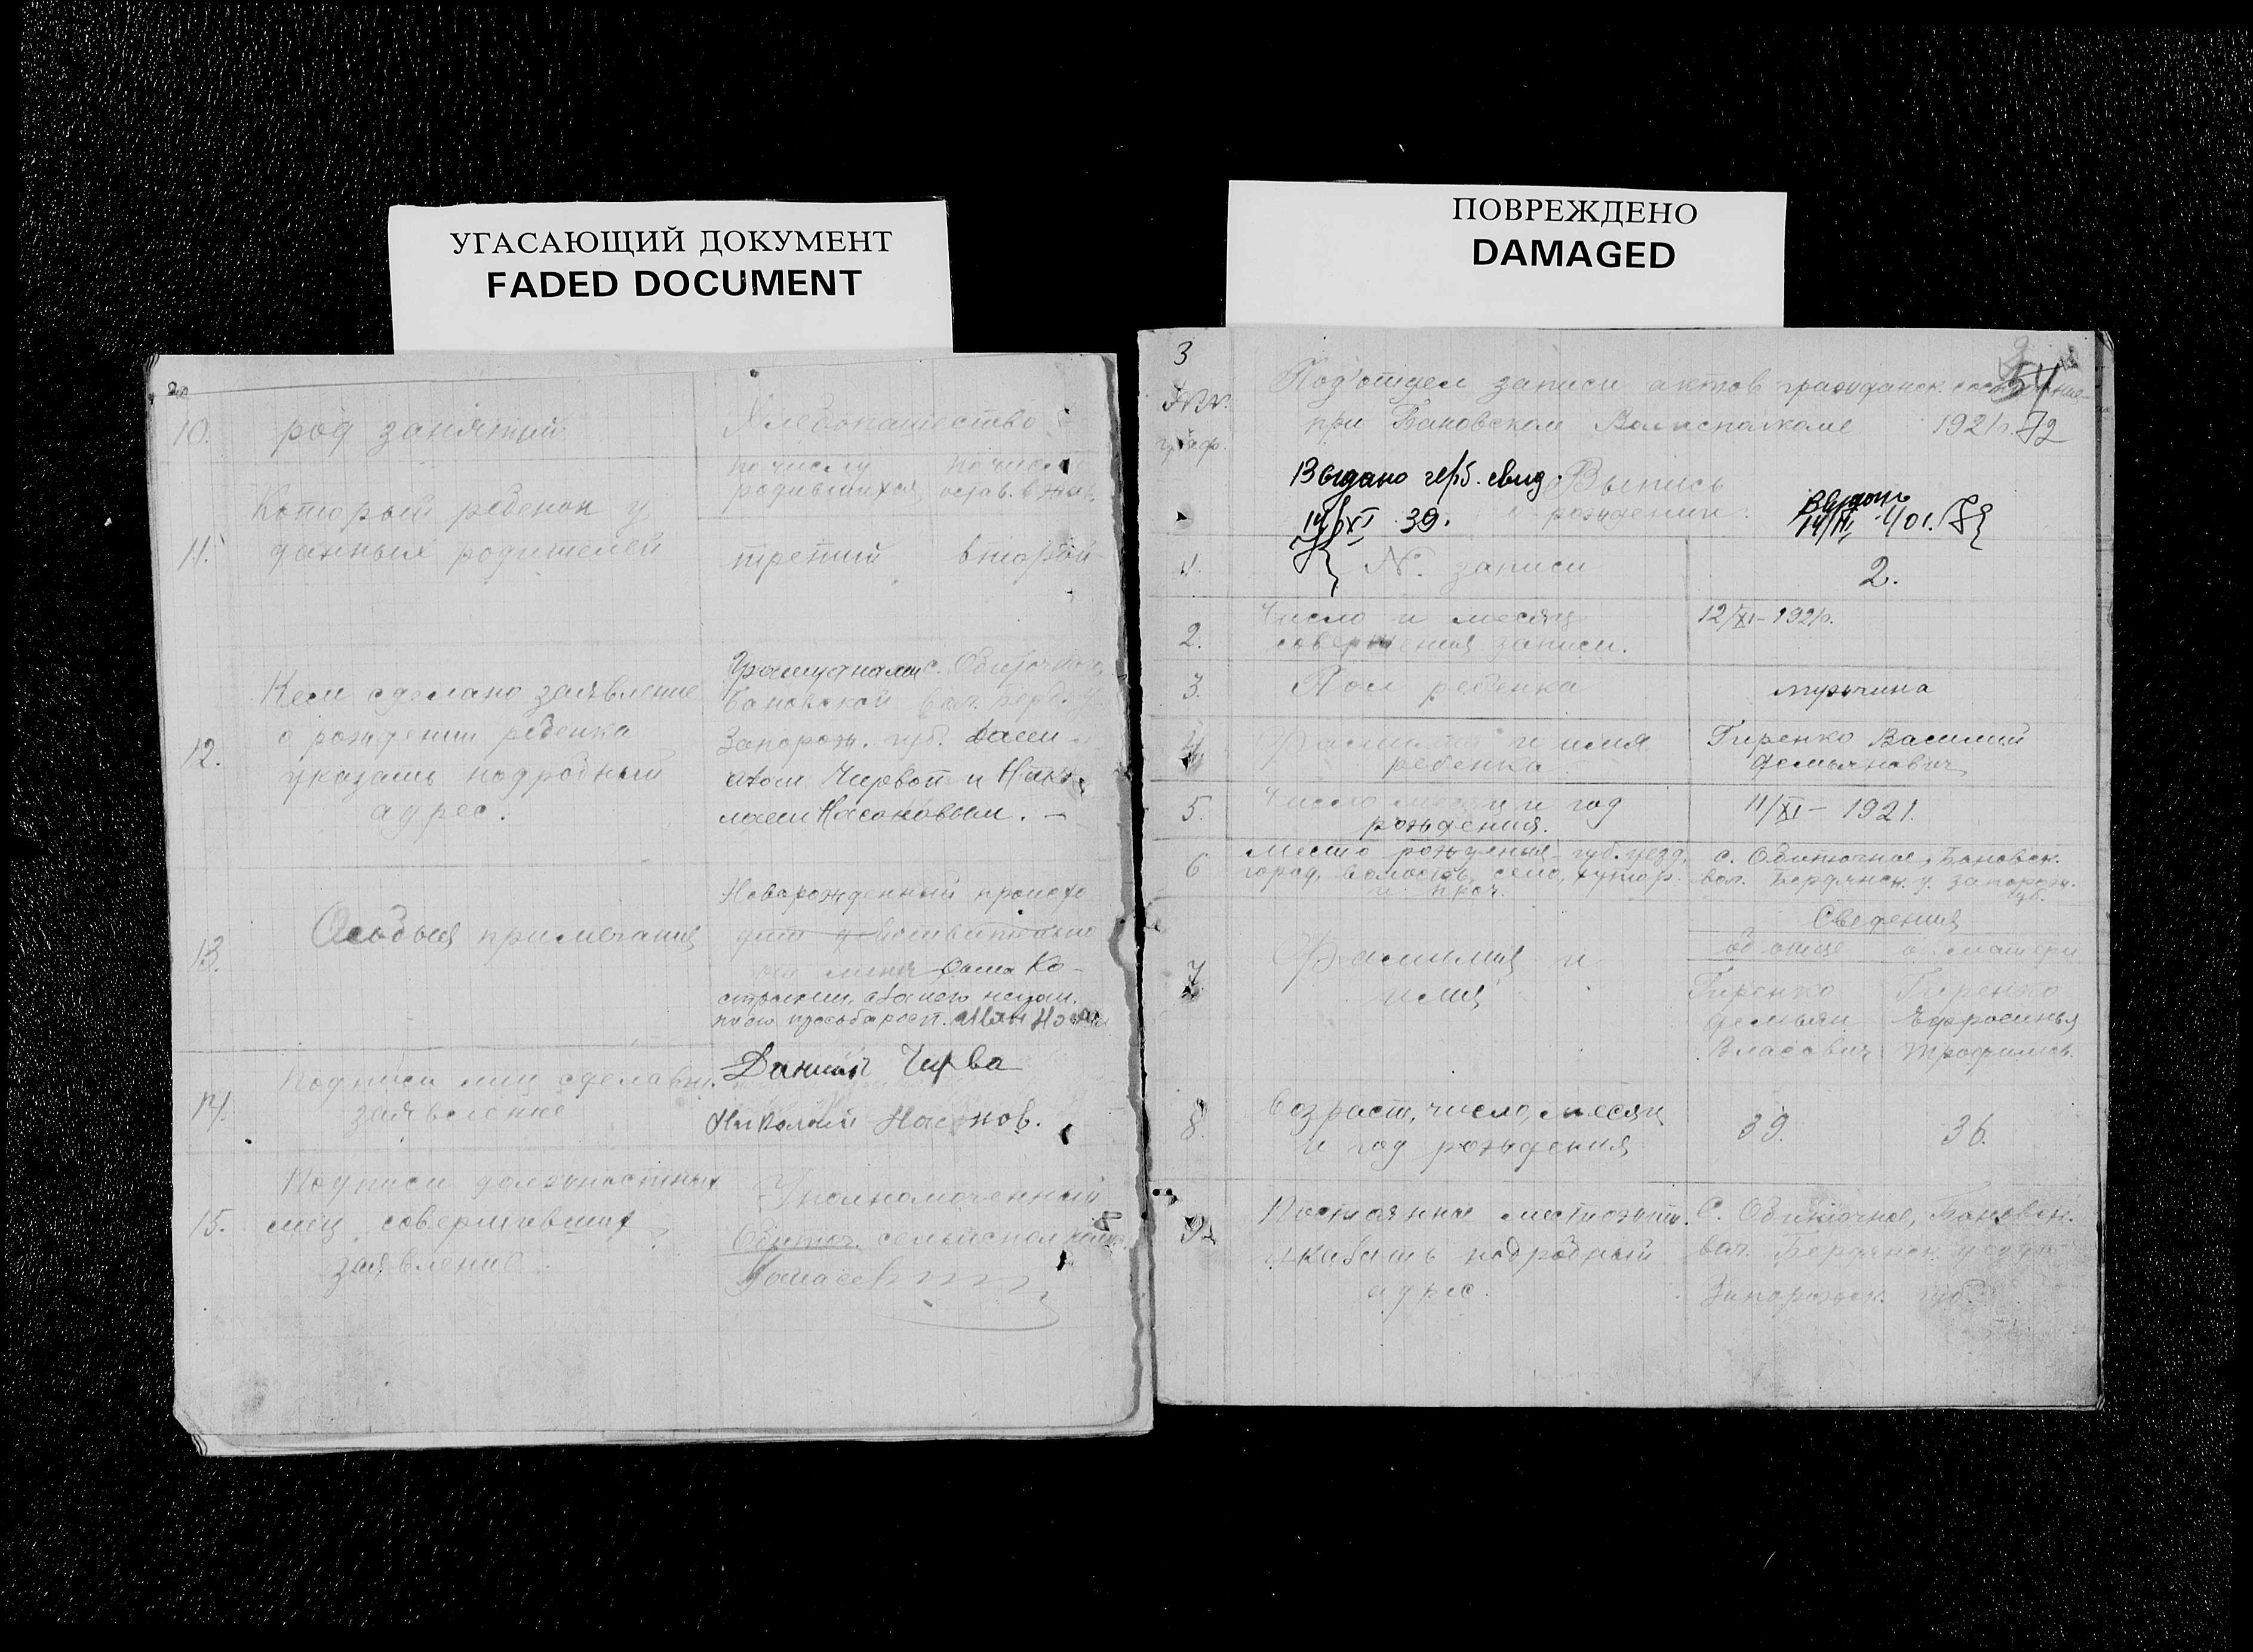 УГАСАЮЩИЙ ДОКУМЕНТ
FADED DOCUMENT
10. род занятий
Хлебопашество
по числу родившихся
по числу остав. в жив.
11. Который ребенок у
данных родителей
третий
второй
12. Кем сделано заявление
о рождении ребенка
указать подробный
адрес.
Гражданами с. Обиточного,
Бановской вол. Берд. у.
Запорож. губ. Дани
илом Чирвой и Нико
лаем Насоновым. —
13. Особыя примечания
Новорожденный происхо
дит действительно
от меня
14. Подписи лиц сделавш.
заявление
Даниил Чирва
Николай Насонов.
15. Подписи должностных
лиц, совершивших
заявление.
Уполномоченный
Обиточ. сельисполкома
ПОВРЕЖДЕНО
DAMAGED
3
54
№№
граф.
Под'отдел записи актов гражданск.
при Бановском Волисполкоме 1921 г. 72
Выдано герб. свид. Выпись
14/XI 39. о рождении.
40 г.
1. №. записи
2.
2. Число и месяц
совершения записи.
12/XI – 1921 г.
3. Пол ребенка
мужчина
4. Фамилия и имя
ребенка
Гиренко Василий
Демьянович
5. Число месяц и год
рождения.
11/XI – 1921.
6 Место рождения губ. уезд,
город, волость, село, хутор.
и проч.
с. Обиточное, Бановск.
вол. Бердянск. у. Запорож.
губ.
Сведения
об отце
о матери
7. Фамилия и
имя
Гиренко
Демьян
Власович
Гиренко
Ефросинья
Трофимов.
8. Возраст, число, месяц
и год рождения
39.
36.
9. Постоянное местожит.
указать подробный
адрес.
С. Обиточное, Бановск.
вол. Бердянск. уезда
Запорожск. губ.